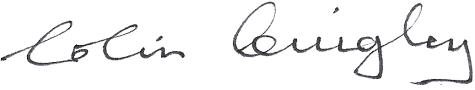 Colin Quigley